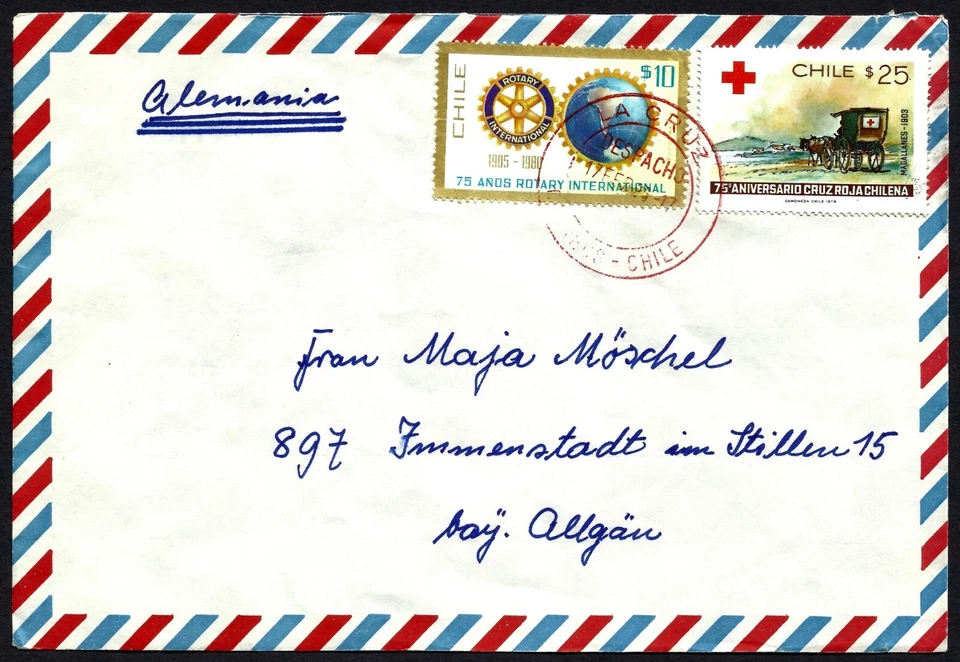 Alemania
CHILE
$10
ROTARY
INTERNATIONAL
1905 - 1980
75 AÑOS ROTARY INTERNATIONAL
CHILE $25
MAGALLANES - 1903
75° ANIVERSARIO CRUZ ROJA CHILENA
CAMONEDA CHILE 1978
LA CRUZ
DESPACHO
17 FEB
- CHILE
Frau Maja Möschel
897 Immenstadt im Stillen 15
bay. Allgäu